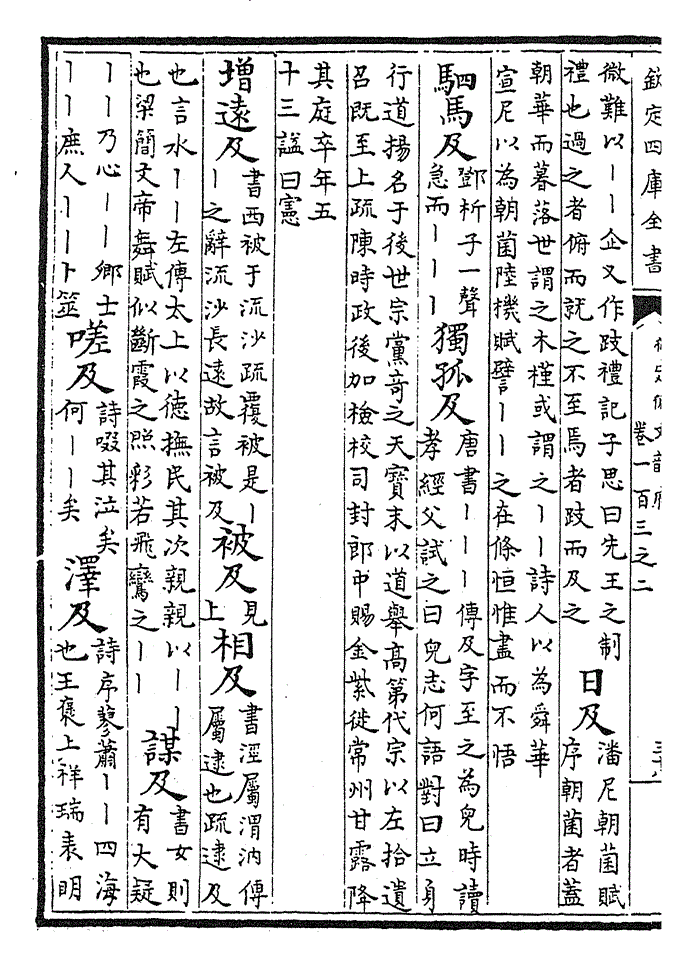 欽定四庫全書
卷一百三之二
微難以丨丨企又作跂禮記子思曰先王之制
禮也過之者俯而就之不至焉者跂而及之
日及
潘尼朝菌賦
序朝菌者蓋
朝華而暮落世謂之木槿或謂之丨丨詩人以為舜華
宣尼以為朝菌陸機賦譬丨丨之在條恒惟盡而不悟
駟馬及
鄧析子一聲
急而丨丨丨
獨孤及
唐書丨丨丨傳及字至之為兒時讀
孝經父試之曰兒志何語對曰立身
行道揚名于後世宗黨奇之天寶末以道舉高第代宗以左拾遺
召既至上疏陳時政後加檢校司封郎中賜金紫徙常州甘露降
其庭卒年五
十三諡曰憲
增遠及
書西被于流沙疏覆被是丨
丨之辭流沙長遠故言被及
被及
見
上
相及
書涇屬渭汭傳
屬逮也疏逮及
也言水丨丨左傳太上以德撫民其次親親以丨丨
也梁簡文帝舞賦似斷霞之照彩若飛鸞之丨丨
謀及
書女則
有大疑
丨丨乃心丨丨卿士
丨丨庶人丨丨卜筮
嗟及
詩啜其泣矣
何丨丨矣
澤及
詩序蓼蕭丨丨四海
也王褒上祥瑞表明